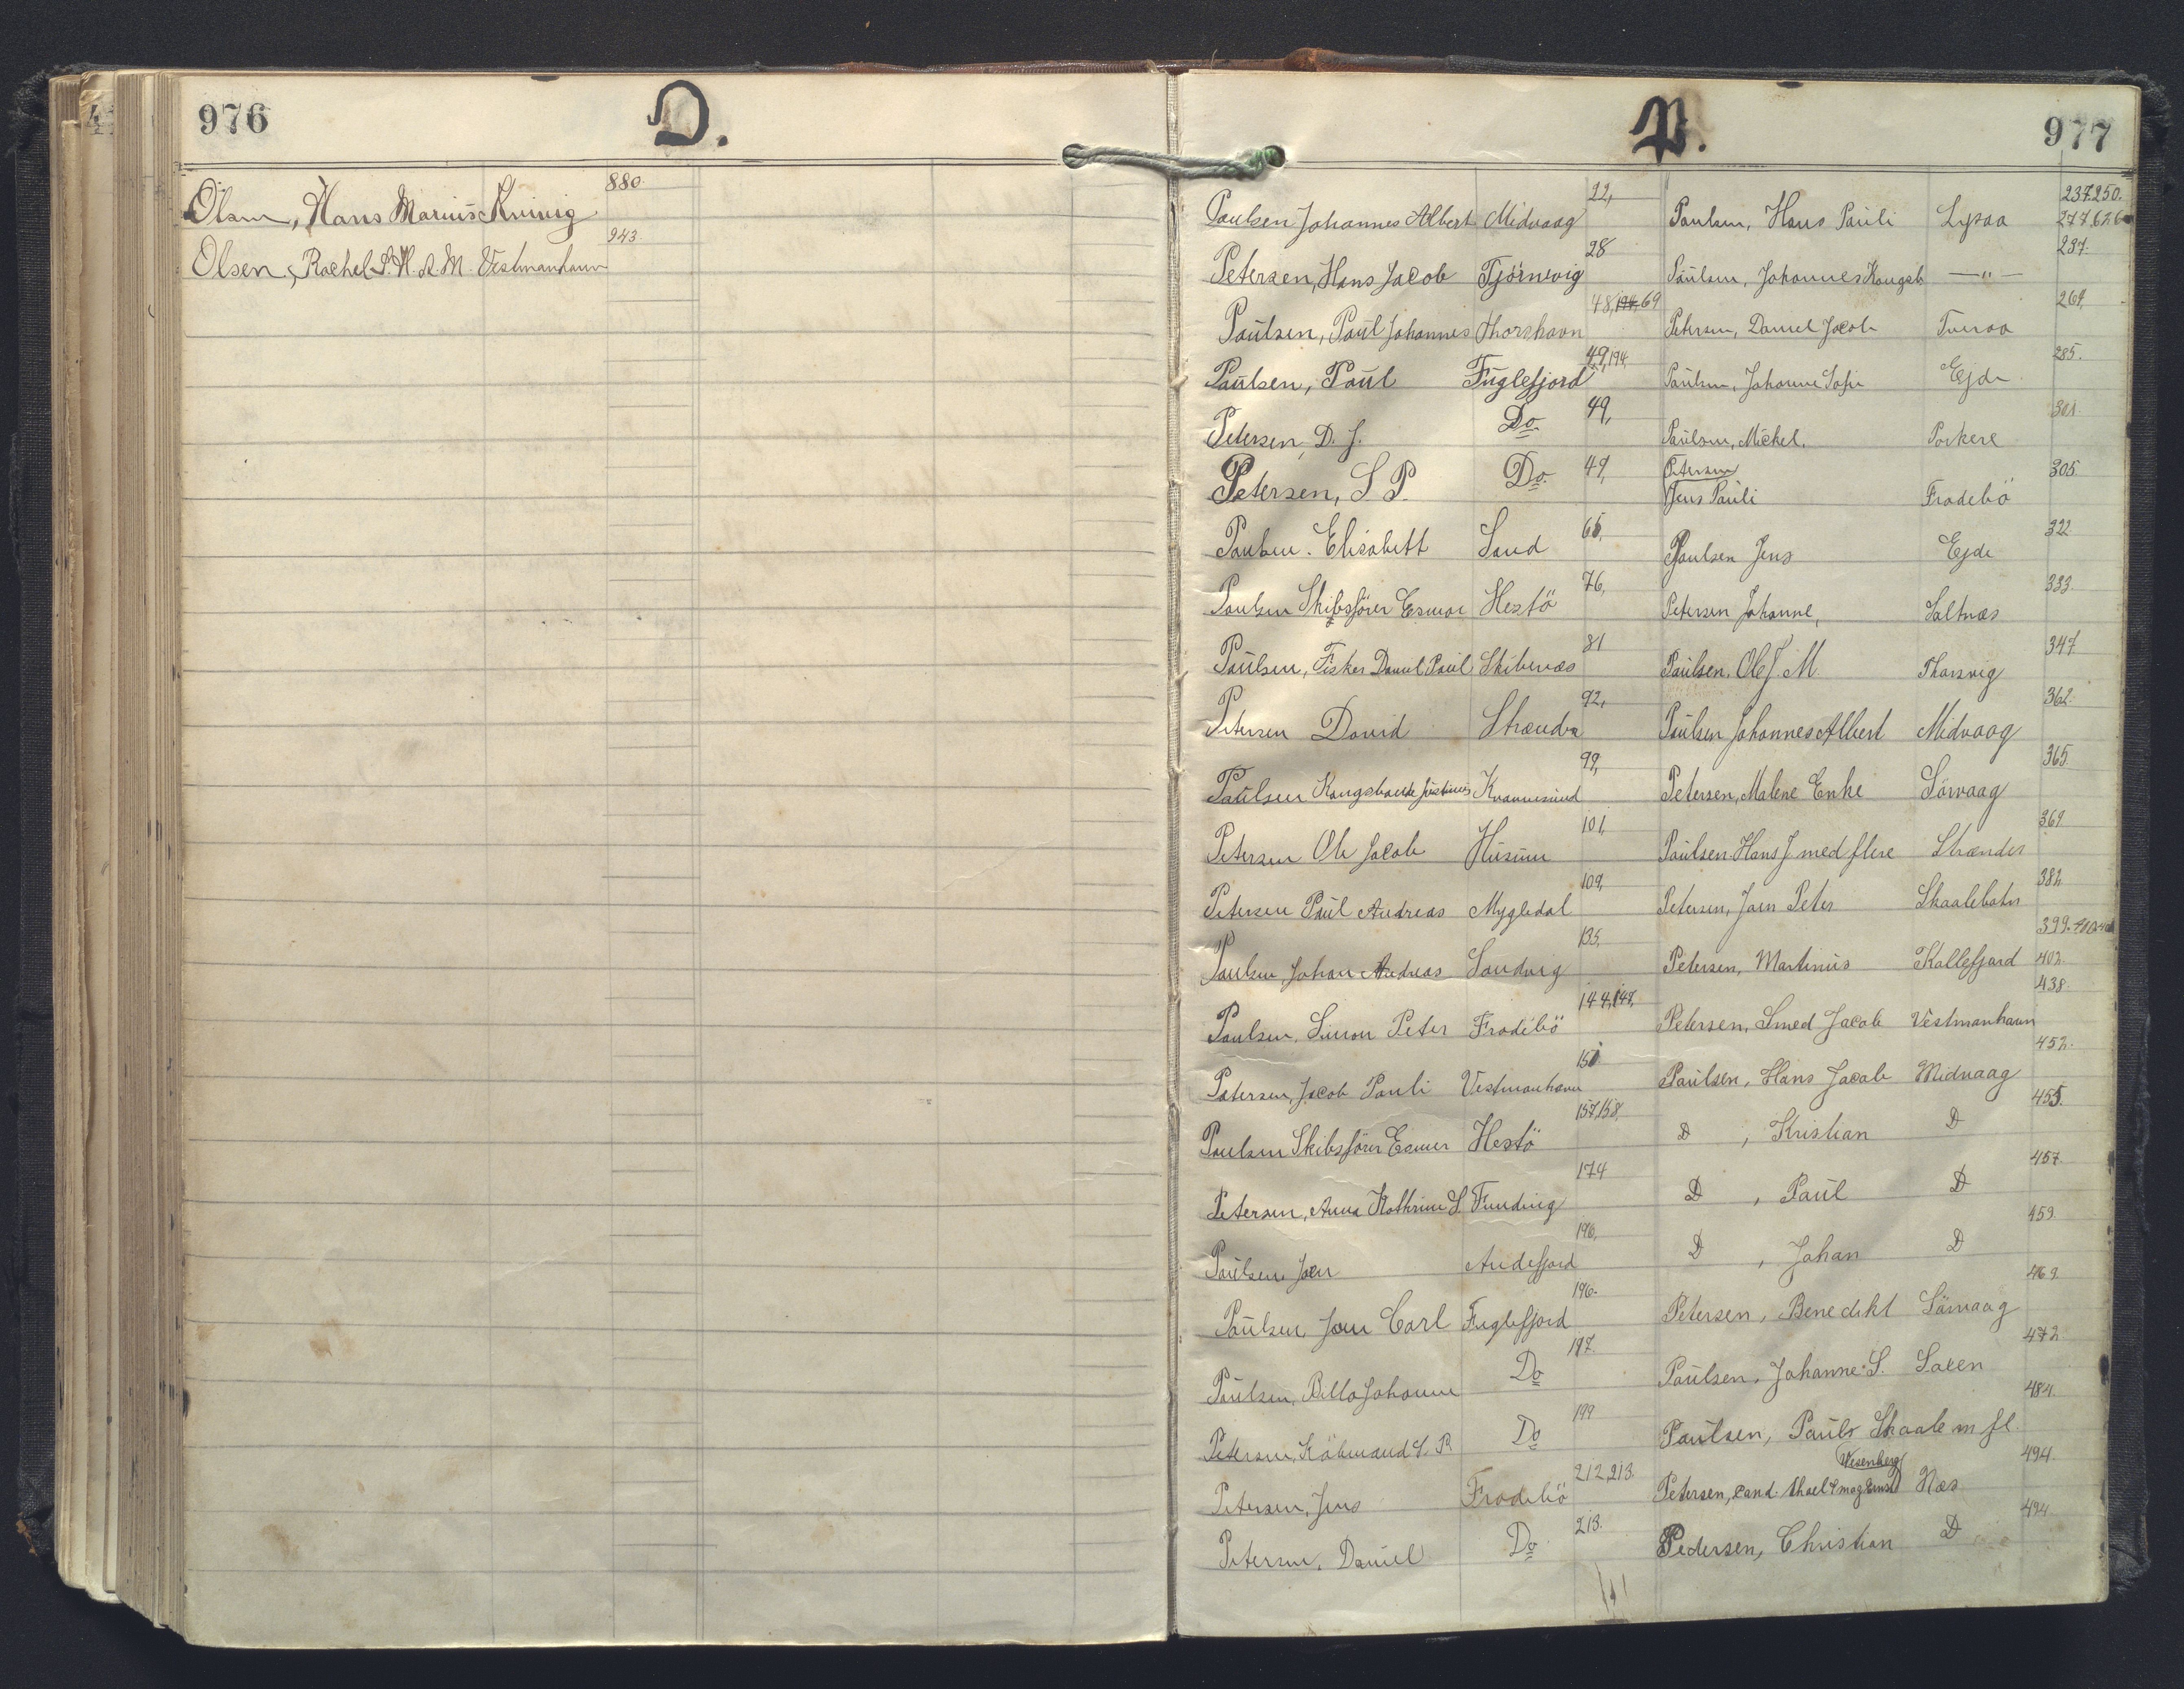 976
O.
Olsen, Hans Marius Kvivig 880.
Olsen, Rachel S. H. A. M. Vestmanhavn 943
P.
977
Paulsen Johannes Albert Midvaag 22,
Petersen, Hans Jacob Tjörnevig 28
Paulsen, Paul Johannes Thorshavn 48, 194, 69
Paulsen, Paul Fuglefjord 49, 194,
Petersen, D. J. Do. 49,
Petersen, S P. Do. 49,
Paulsen. Elisabett Sand 65,
Paulsen Skibsförer Esmar Hestö 76,
Paulsen, Fisker Daniel Paul Skibenæs 81
Petersen David Strænder 92,
Paulsen Kongsbonde Justinus Kvannesund 99,
Petersen Ole Jacob Husum 101,
Petersen Paul Andreas Mygledal 109,
Paulsen Johan Andreas Sandvig 135,
Paulsen, Simon Peter Frodebö 144, 147,
Petersen, Jacob Pauli Vestmanhavn 151.
Paulsen Skibsförer Esmar Hestö 157, 158,
Petersen, Anna Kathrine S. Funding 174
Paulsen, Joen Andefjord 196,
Paulsen, Joen Carl Fuglefjord 196.
Paulsen, Billa Johanne Do 197.
Petersen, Köbmand S. P. Do 199
Petersen, Jens Frodebö 212, 213.
Petersen, Daniel Do. 213.
Paulsen, Hans Pauli Lypaa 237. 250. 277, 626
Paulsen, Johannes Kongsb —"— 287.
Petersen, Daniel Jacob Tveraa 269,
Paulsen, Johanne Sofie Ejde. 285.
Paulsen, Mickel. Porkere 301.
Petersen Jens Pauli Frodebö 305.
Paulsen Jens Ejde 322
Petersen Johanne, Saltnæs 333.
Paulsen, Ole J. M. Thorsvig 347
Paulsen Johannes Albert Midvaag 362.
Petersen, Malene Enke Sörvaag 365.
Paulsen Hans J. med flere Strænder 369
Petersen, Joen Peter Skaalebotn 382
Petersen, Martinus Kollefjord 399. 402.
Petersen, Smed Jacob Vestmanhavn 438.
Paulsen, Hans Jacob Midvaag 452.
D , Kristian D 455.
D , Paul D 457.
D , Johan D 459.
Petersen, Benedikt Sörvaag 469.
Paulsen, Johanne S. Saxen 472.
Paulsen, Pauls Skaale m fl. 484.
Petersen, cand. theol & mag Ernst Wesenberg Næs 494.
Pedersen, Christian D 494